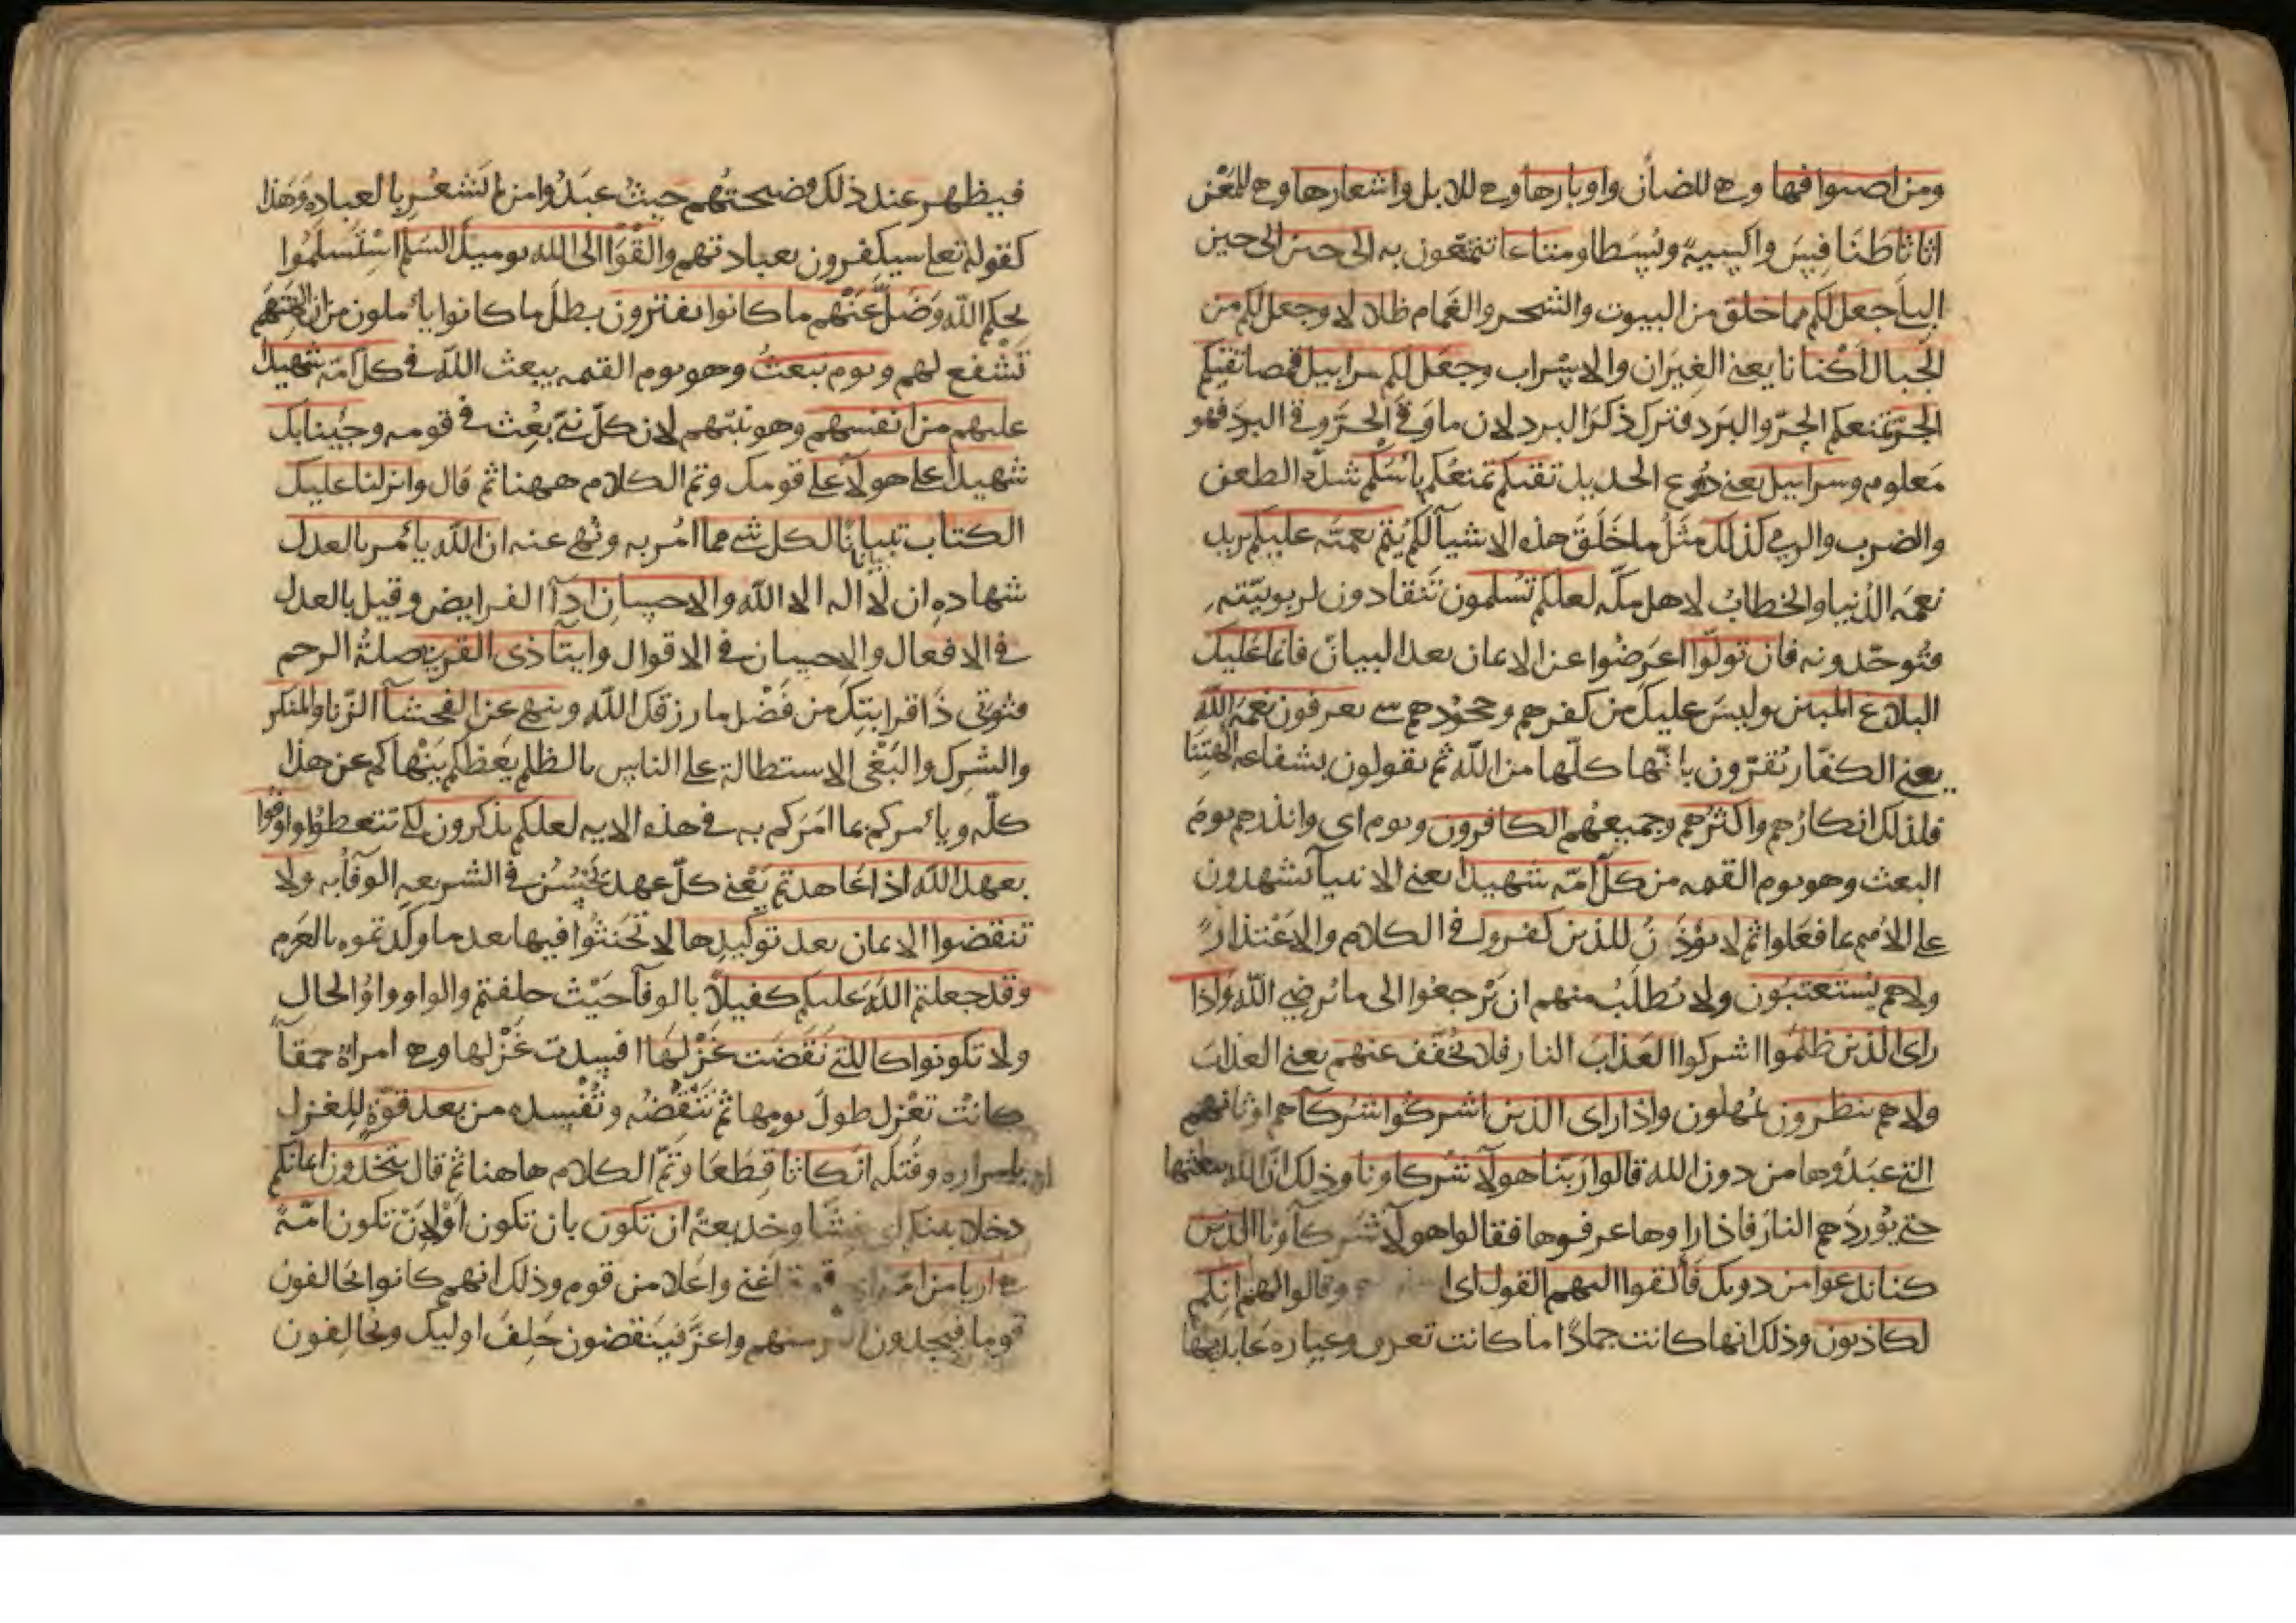 ومن اصوافها وهي للضأن واوبارها وهي للابل واشعارها وهي للمعز
اثاثا طنافِسَ واكسِيةً وبُسُطا ومتاعا تتمتّعون به الى حين الى حين
البلَى جعل لكم مما خلق من البيوت والشجر والغمام ظلالا وجعل لكم من
الجبال اكنانا يعني الغِيَران والاسراب وجعل لكم سرابيل قمصا تقيكم
الحرّ تمنعكم الحرّ والبَرد فترك ذكرَ البرد لان ما وقى الحرّ وقى البردَ فهو
مَعلوم وسرابيل يعني دُروع الحديد تقيكم تمنعكم باسَكم شدّة الطعن
والضرب والرمي كذلك مثلُ ما خَلَقَ هذه الاشيآ لكم يُتمّ نعمتَه عليكم يريد
نعمَة الدُنيا والخطابُ لاهل مكّة لعلكم تُسلمون تَنقادون لربوبيّته
فتُوحّدونه فان تولّوا اعرَضُوا عن الايمان بعد البيان فانما عَليك
البلاغ المبين وليسَ عليك من كفرهم وجحُودهم شي يعرفون نعمة الله
يعني الكفّار يُقرّون بانّها كلّها من الله ثم يقولون بشفاعة الهتِنَا
فلذلك انكارُهم واكثرُهم وجميعُهم الكافرون ويوم اي وانذرهم يومَ
البعث وهو يوم القيمة من كلّ امّة شهيدا يعني الانبيآ يشهدون
على الاُمم بما فعَلوا ثم لا يؤذَنُ للذين كفروا في الكلام والاعْتذار
ولا هم يُستعتبُون ولا يُطلَبُ منهم ان يَرجعُوا الى ما يُرضي الله وَاذا
راى الذين ظلمُوا اشركوا العَذابَ النار فلا يُخفّف عنهم يعني العذابَ
ولا هم ينظرون يُمهلون واذا راى الذين اشركُوا شرُكآهم اوثانهم
التي عبَدُوها من دون الله قالوا رَبّنا هولآ شُركاونا وذلك انّ الله يبعثها
حتى يُوردَهم النارَ فاذا راوها عرفوها فقالوا هولآ شُركآونا الذين
كنا ندعوا من دونك فألقوا اليهم القول اى وقالوا لهم انكم
لكاذبون وذلك انها كانت جمادًا ما كانت تعرف عبادة عابديها
فيظهر عند ذلك فضيحتُهم حيثُ عبَدُوا من لم يَشعُر بالعبادة وَهَذا
كقوله تعا سيكفرون بعبادتهم والقَوْا الى الله يوميذٍ السَلم اسْتَسلَمُوا
لحكم الله وَضَلَّ عَنْهم ما كانوا يفترون بطل ما كانوا يأملون من ان الهتَهم
تَشْفع لهم ويوم نبعثُ وهو يوم القيمه يبعث الله في كل امّة شهيدا
عليهم من انفسهم وهو نبيّهم لان كلّ نبيّ بُعِث في قومه وجئنا بك
شهيدا على هولآ على قومك وتم الكلام ههنا ثم قال وانزلنا عليك
الكتاب تبيانًا لكل شي مما امُر به ونُهي عنه ان الله يأمر بالعدل
شهادهِ ان لَا اله الا الله والاحسانِ ادآ الفرايض وقيل بالعدل
في الافعال والاحسان في الاقوال وايتآ ذى القربى صلة الرحم
فتُوتي ذَا قرابتِك من فَضْل ما رزقك الله وينهى عن الفحشآ الزنا والمنكر
والشِرك والبَغْى الاستطالة على الناس بالظلم يَعظكم يَنْهاكم عن هذا
كلّه ويأمركم بما امَركم به في هذه الايه لعلكم تذكرون لكي تتعظوا واوفُوا
بعهد الله اذا عَاهدتم يَعْني كلّ عهد يَحْسُن في الشريعهِ الوفآ به ولا
تنقضوا الايمان بعد توكيدِها لا تَحْنَثُوا فيها بعد ما وكّدتموه بالعَزم
وقد جعلتم اللهَ عليكم كفيلاً بالوفآ حَيْث حلفتم والواو واوُ الحال
ولا تكونوا كالتي نَقَضَت غَزْلهَا افسدت غَزْلها وهي امراة حمقآ
كانت تغْزل طولَ يومِها ثم تَنْقُضُه وتُفْسده من بعد قوّةٍ للغزل
بامراره وفَتْله انكاثا قِطَعًا وتمّ الكلام هاهنا ثم قال تتخذون ايمانكم
دخلا بينكم غِشّا وخديعةً ان تكون بان تكون اَوْ لِاَنْ تكون امّةٌ
هي اربا من امّة اى قوم اغنى واعَلا من قوم وذلك انهم كانوا يحَالفونَ
قوما فيجدون اكثر منهم واعزّ فيَنقضون حَلِفَ اوليك ويُحَالِفون